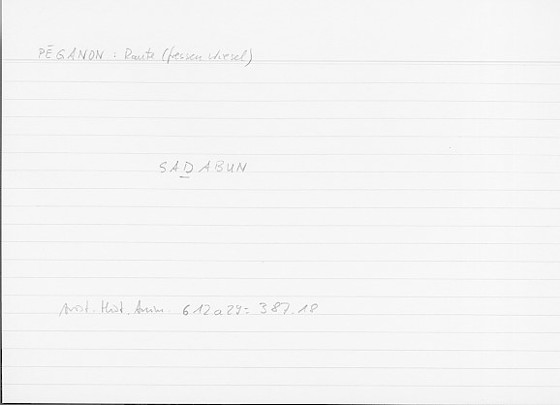 PĒGANON = Raute (fressen Wiesel)
SAḎABUN
Arist. Hist. Anim. 612a29 = 387.18